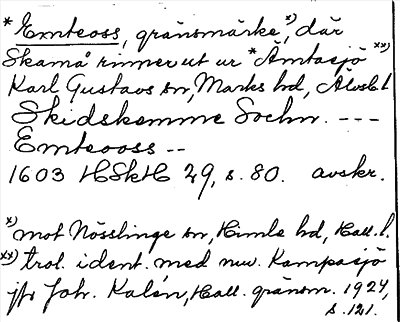 *Emteoss, gränsmärke x), där
Skamå rinner ut ur *Ämtasjö xx)
Karl Gustavs sn, Marks hd, Älvsb.l.
Skidskemme Sochn. ---
Emteooss --
1603 HSkH 29, s. 80. avskr.
x) mot Nösslinge sn, Himle hd, Hall.l.
xx) trol. ident. med nuv. Kampasjö
jfr Joh. Kalén, Hall. gränsm. 1924,
s. 121.